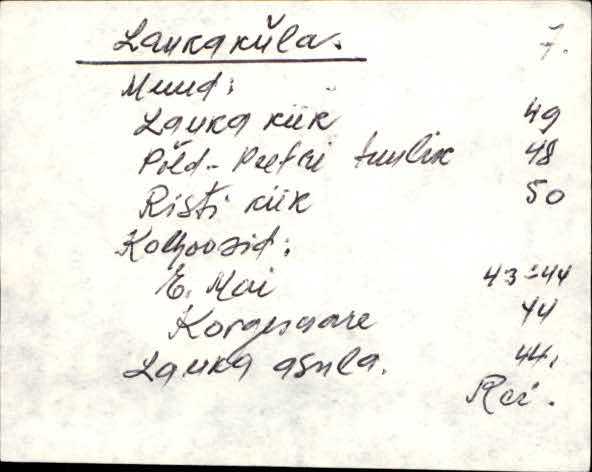 Lauka küla. 7.
Muud:
Lauka kiik 49
Põld-Peetri tuulik 48
Risti kiik 50
Kolhoosid:
E. Mai 43-44
Korgesaare 44
Lauka asula. 44.